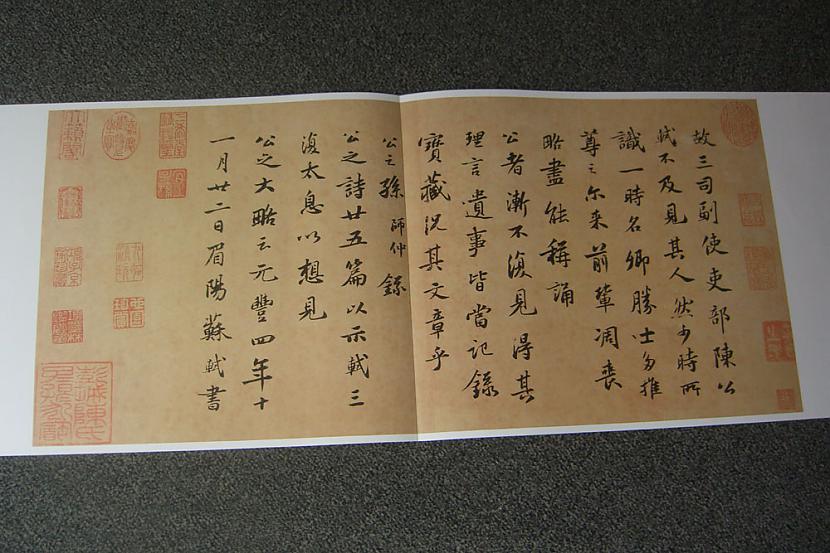 故三司副使吏部陳公
軾不及見其人然少時所
識一時名卿勝士多推
尊之尒来前輩凋喪
略盡能稱誦
公者漸不復見得其
理言遺事皆當記錄
寶藏況其文章乎
公之孫師仲錄
公之詩廿五篇以示軾三
復太息以想見
公之大略云元豐四年十
一月廿二日眉陽蘇軾書